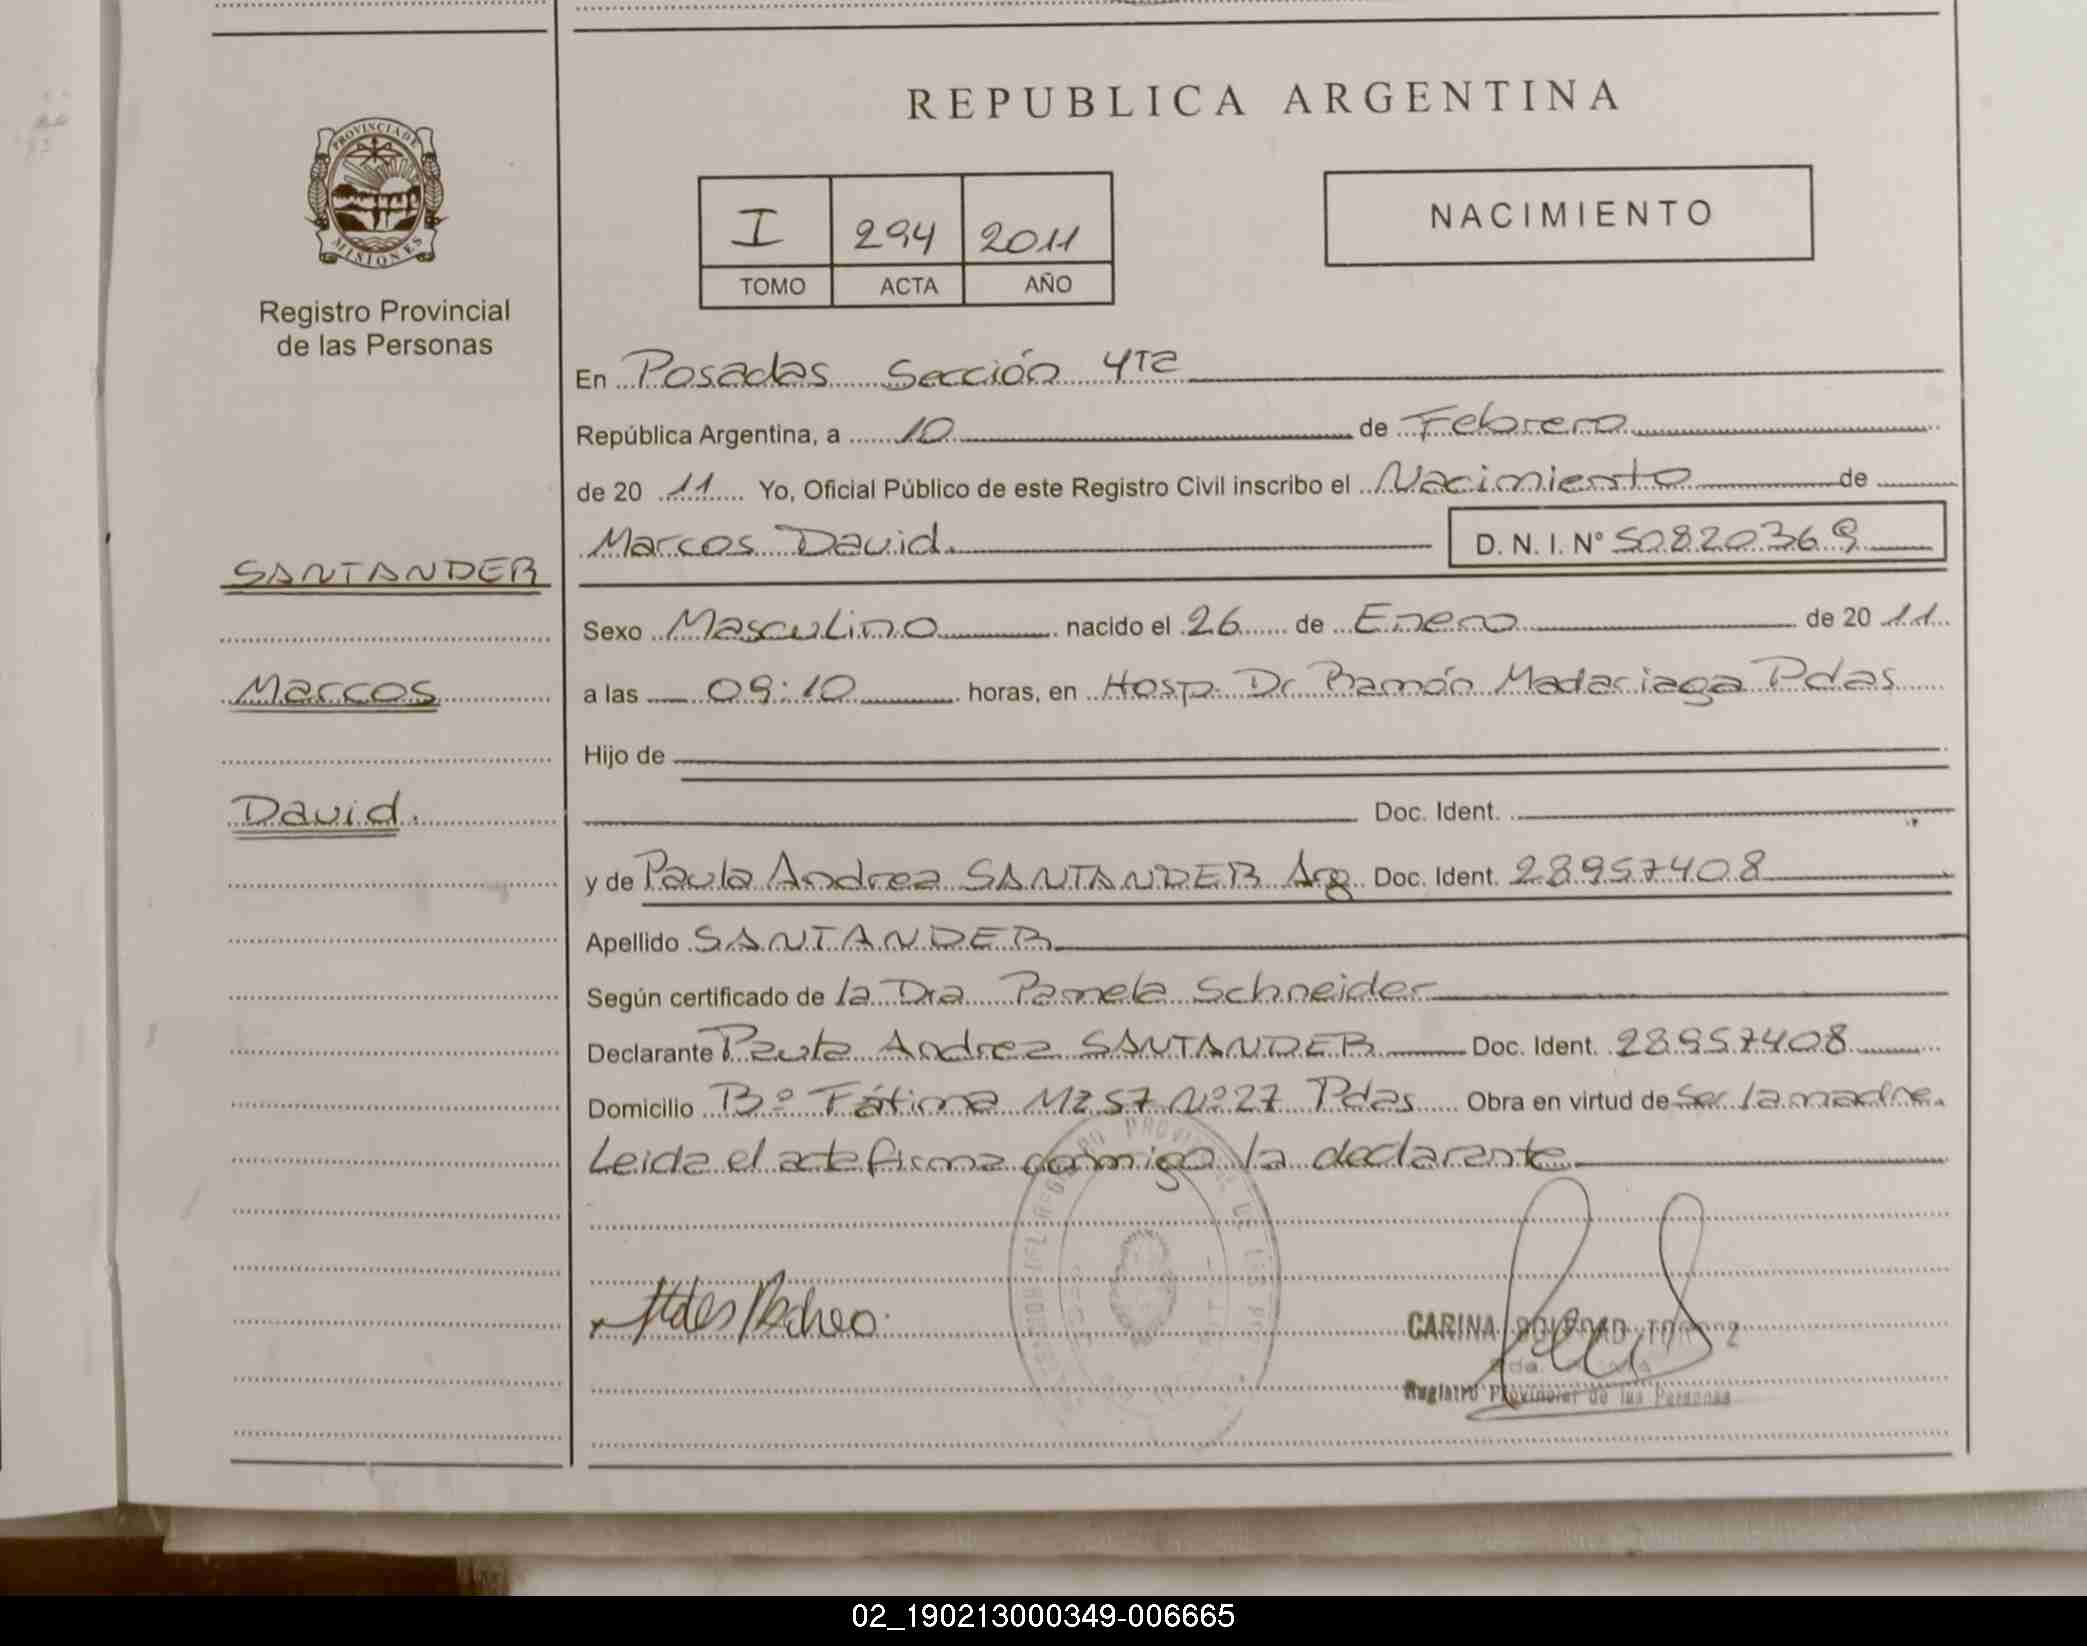 REPUBLICA ARGENTINA
PROVINCIA DE
MISIONES
Registro Provincial
de las Personas
I 294 2011
TOMO ACTA AÑO
NACIMIENTO
SANTANDER
Marcos
David.
En Posadas Sección 4ta
República Argentina, a 10 de Febrero
de 20 11 Yo, Oficial Público de este Registro Civil inscribo el Nacimiento de
Marcos David. D. N. I. N° 50820369
Sexo Masculino nacido el 26 de Enero de 20 11
a las 09:10 horas, en Hosp. Dr Ramón Madariaga Pdas
Hijo de
Doc. Ident.
y de Paula Andrea SANTANDER Arg. Doc. Ident. 28957408
Apellido SANTANDER
Según certificado de la Dra Pamela Schneider
Declarante Paula Andrea SANTANDER Doc. Ident. 28957408
Domicilio B° Fátima Mz 57 N° 27 Pdas Obra en virtud de Ser la madre.
Leida el acta firma conmigo la declarante
CARINA SOLEDAD
Registro Provincial de las Personas
02_190213000349-006665